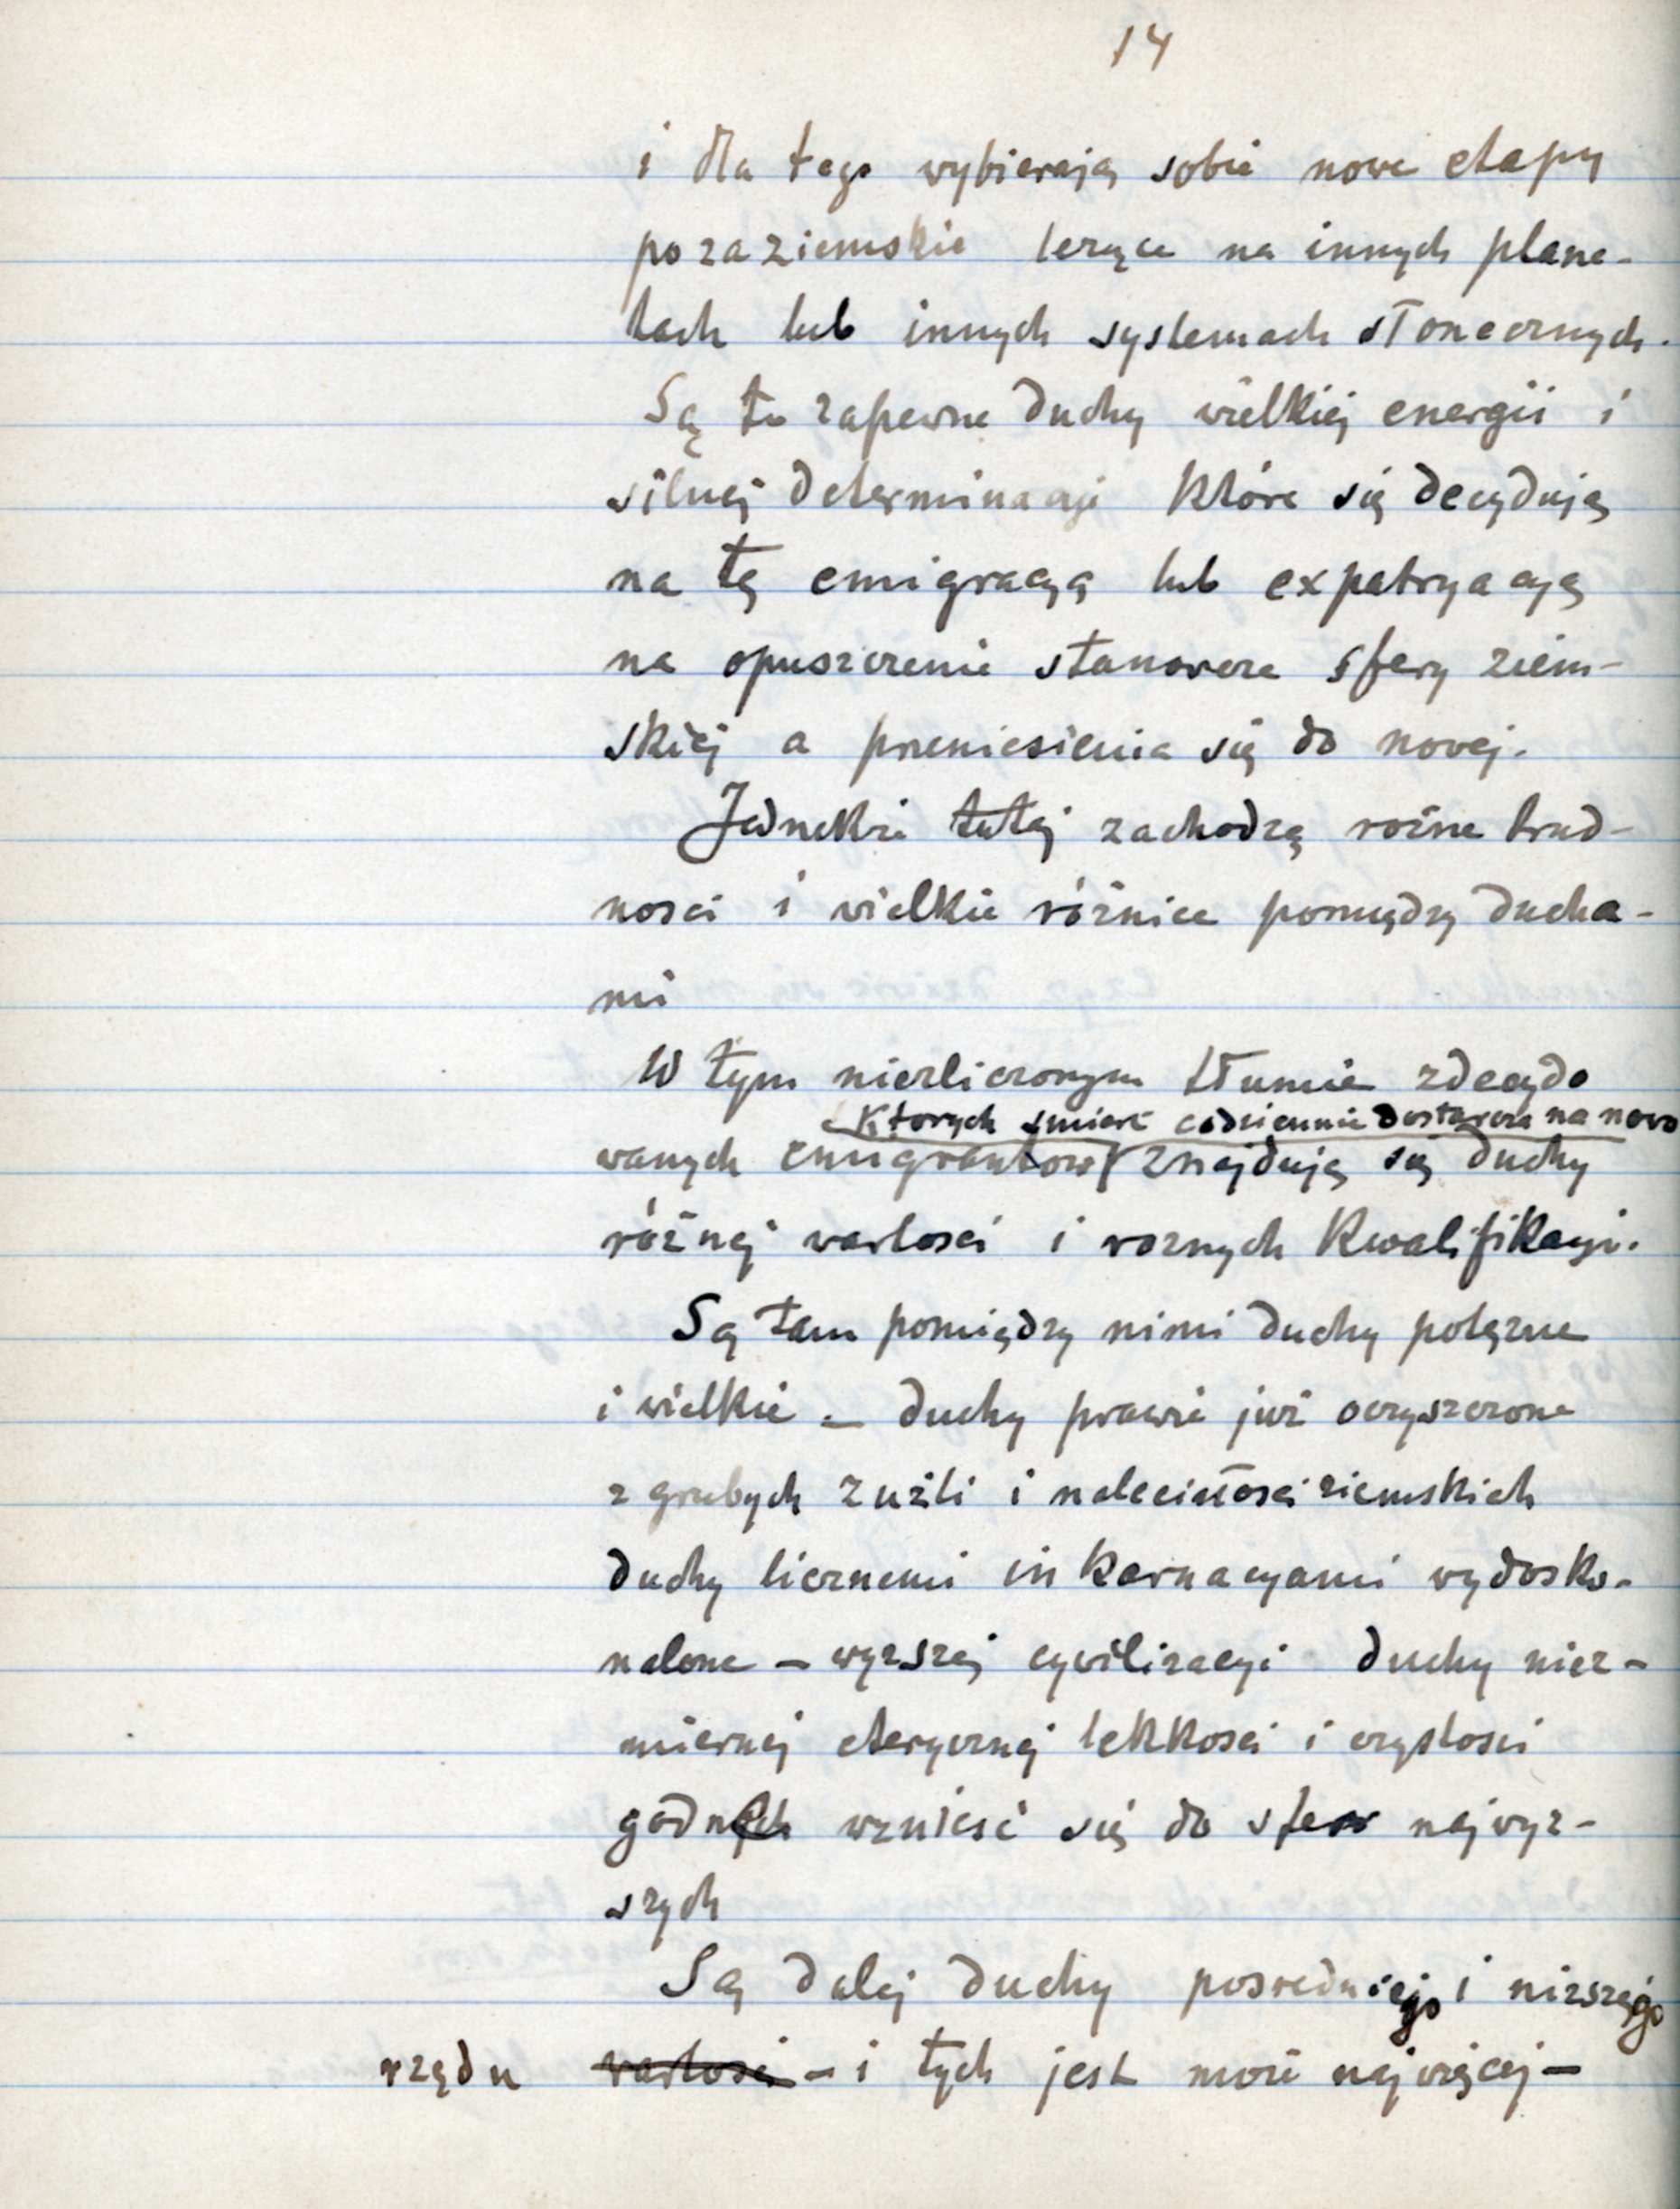 14
i dla tego wybierają sobie nowe etapy
pozaziemskie leżące na innych plane-
tach lub innych systemach słonecznych.
Są to zapewne duchy wielkiej energii i
silnej determinacyi które się decydują
na tę emigracyą lub expatryacyą
na opuszczenie stanowcze sfery ziem-
skiej a przeniesienia się do nowej.
Jednakże tutaj zachodzą rożne trud-
nosci i wielkie różnice pomiędzy ducha-
mi
W tym niezliczonym tłumie zdecydo
których śmierć codziennie dostarcza na nowo
wanych emigrantow znajdują się duchy
różnej wartosci i roznych kwalifikacyi.
Są tam pomiędzy nimi duchy potęzne
i wielkie – duchy prawie już oczyszczone
z grubych zużli i naleciałosci ziemskich
duchy licznemi inkarnacyami wydosko-
nalone – wyzszej cywilizacyi duchy niez-
miernej eterycznej lekkosci i czystosci
godnych wznieść się do sfer najwyz-
szych
Są dalej duchy posredniego i nizszego
rzędu wartosci – i tych jest może najwięcej –